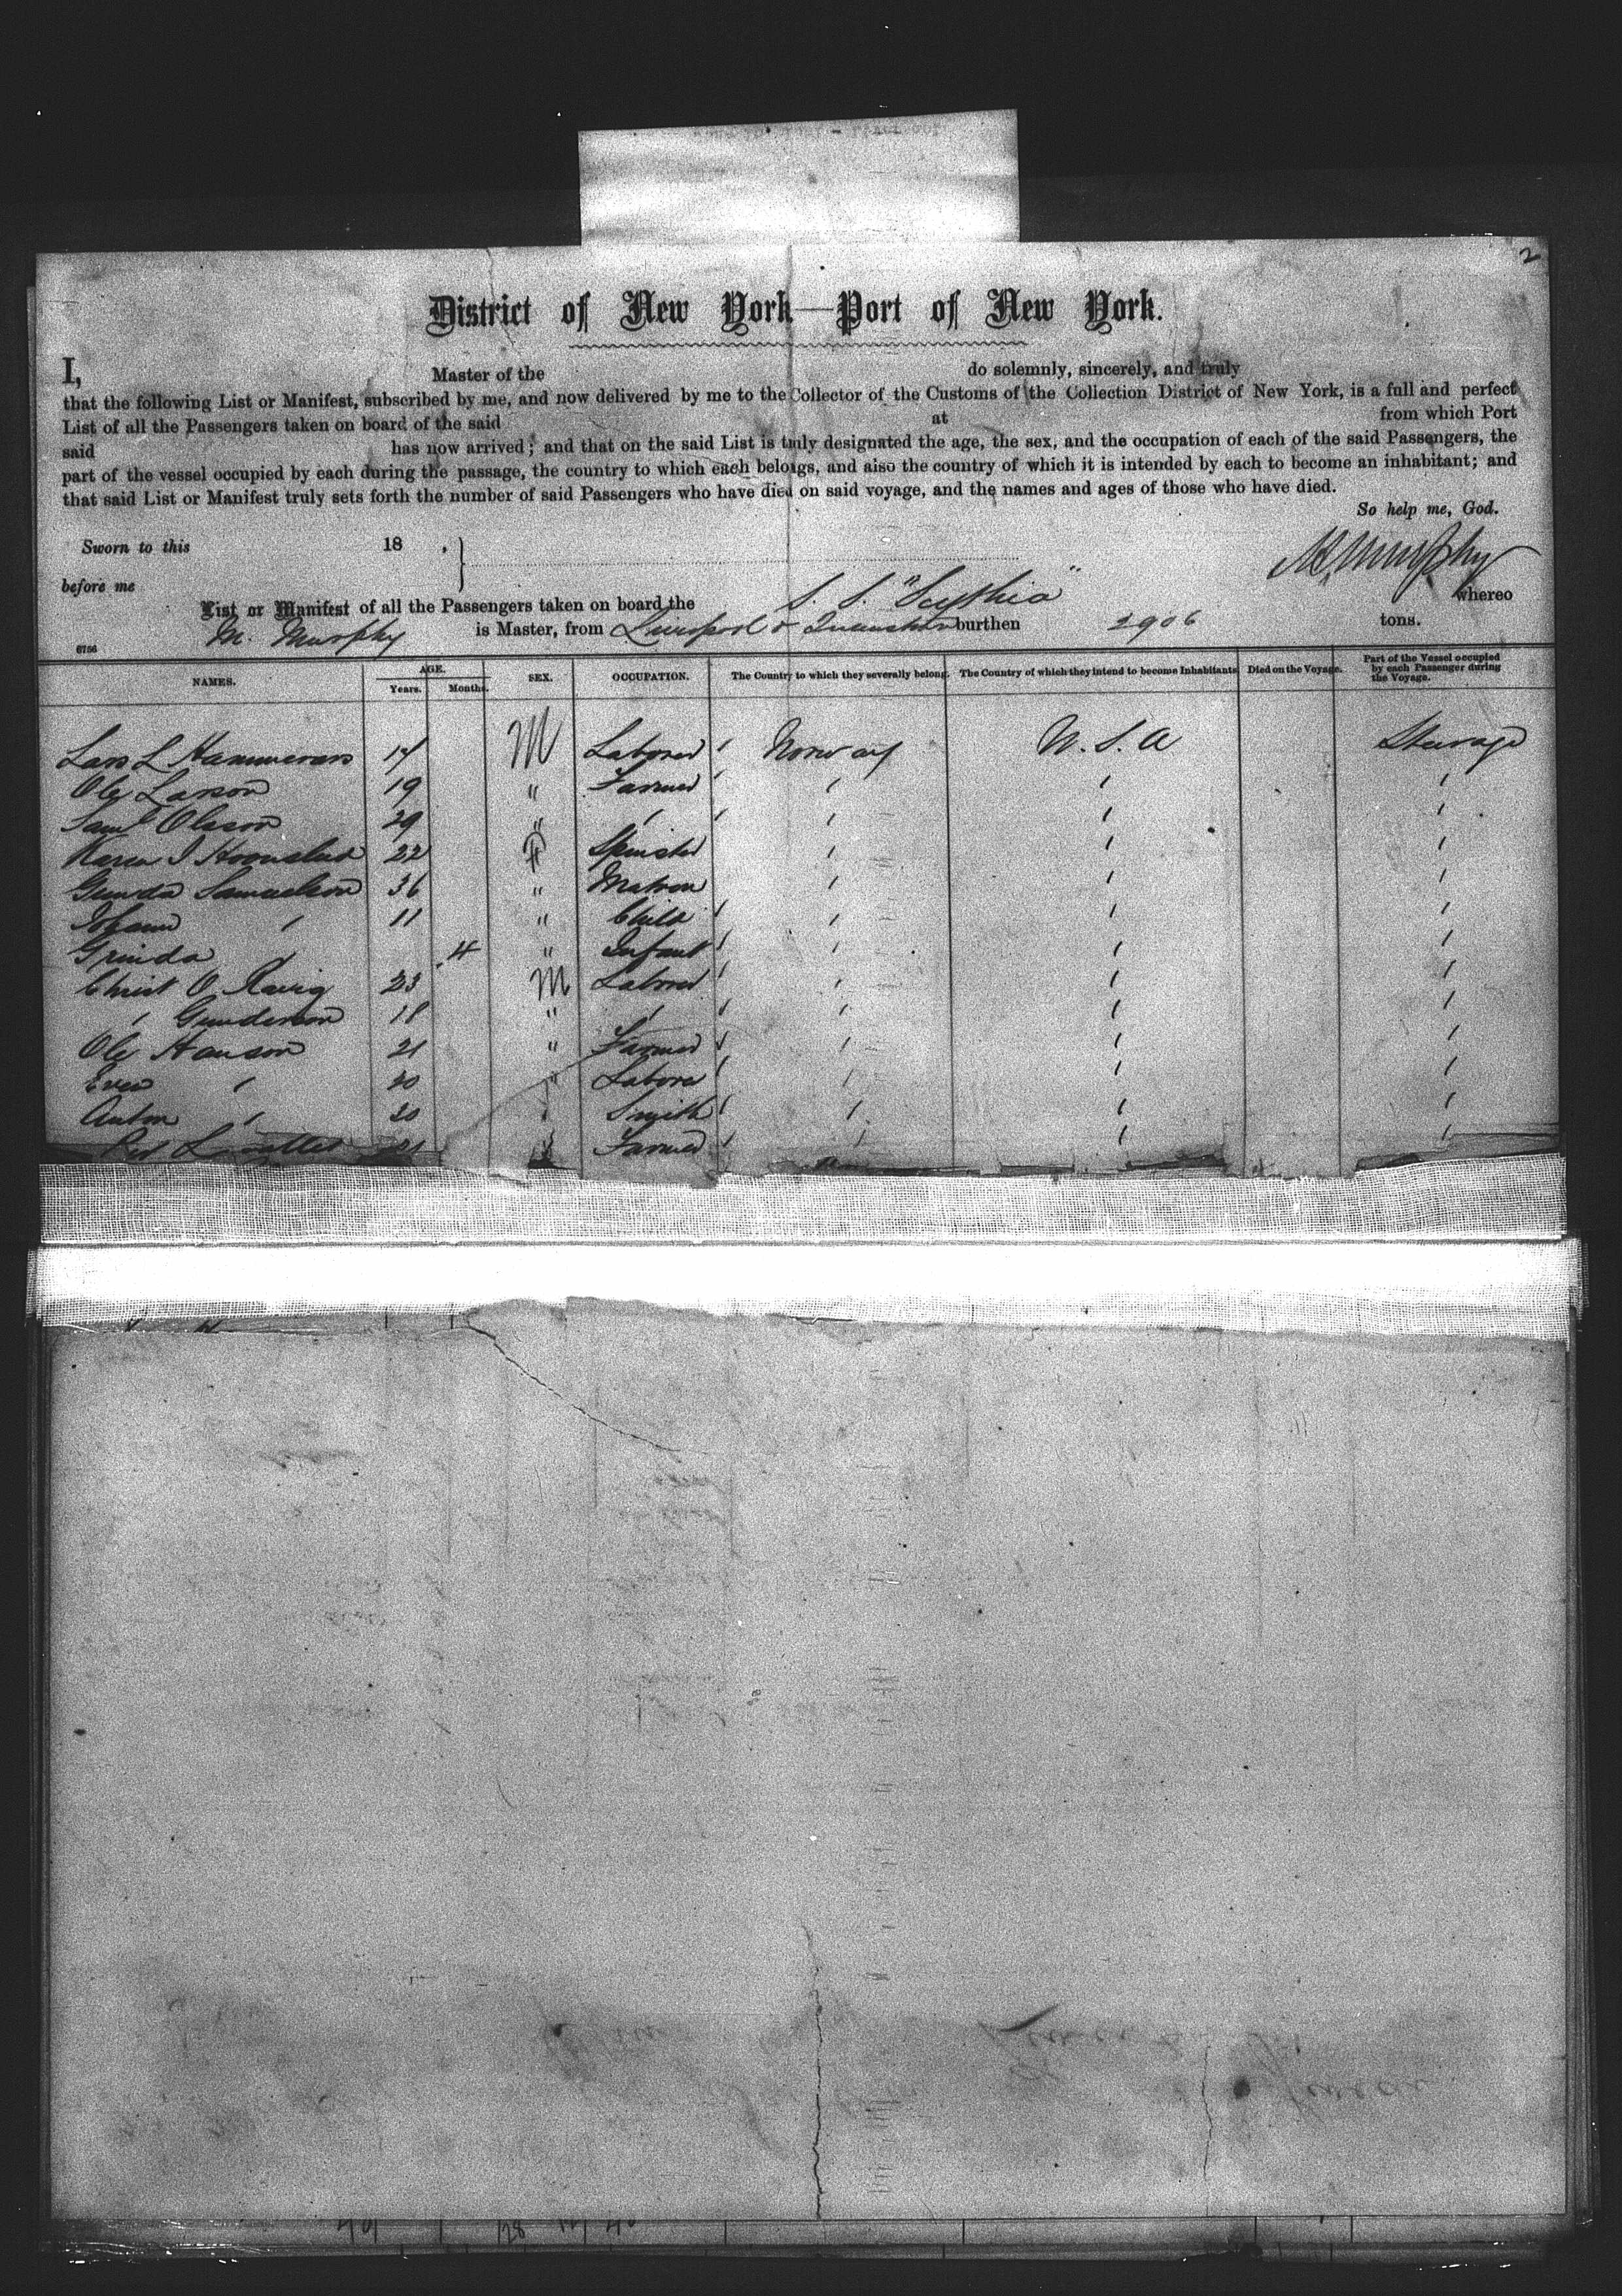 2
District of New York—Port of New York.
I, Master of the do solemnly, sincerely, and truly
that the following List or Manifest, subscribed by me, and now delivered by me to the Collector of the Customs of the Collection District of New York, is a full and perfect
List of all the Passengers taken on board of the said at from which Port
said has now arrived; and that on the said List is truly designated the age, the sex, and the occupation of each of the said Passengers, the
part of the vessel occupied by each during the passage, the country to which each belongs, and also the country of which it is intended by each to become an inhabitant; and
that said List or Manifest truly sets forth the number of said Passengers who have died on said voyage, and the names and ages of those who have died.
So help me, God.
Sworn to this 18 ,
M. Murphy
before me
List or Manifest of all the Passengers taken on board the S. S. "Scythia" whereo
M. Murphy is Master, from Liverpool & Queenstown burthen 2906 tons.
6756
NAMES. AGE. Years. Months. SEX. OCCUPATION. The Country to which they severally belong. The Country of which they intend to become Inhabitants Died on the Voyage. Part of the Vessel occupied by each Passenger during the Voyage.
Lars L M Laborer Norway U. S. A Steerage
Ole Larson 19 " Farmer
Saml Oleson 29 "
Karen I 22 F Spinster
Gunda Samuelson 36 " Matron
Johann 11 " Child
Grinda 4 " Infant
Christ O. Ravig 23 M Laborer
" Gunderson 18 "
Ole Hanson 21 " Farmer
Even 20 " Labore
Anton 20 " Smith
Farmer